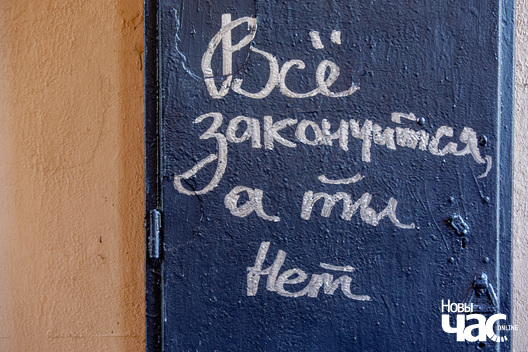 Всё
закончится,
а ты
нет
Новы
час
ONLINE